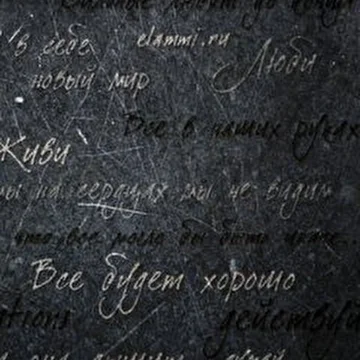 Сильные
до конца
в себе elammi.ru
Люби
новый мир
Все в наших руках
Живи
мы на сердцах мы не видим
что все могло бы быть иначе
Все будет хорошо
ations действуй